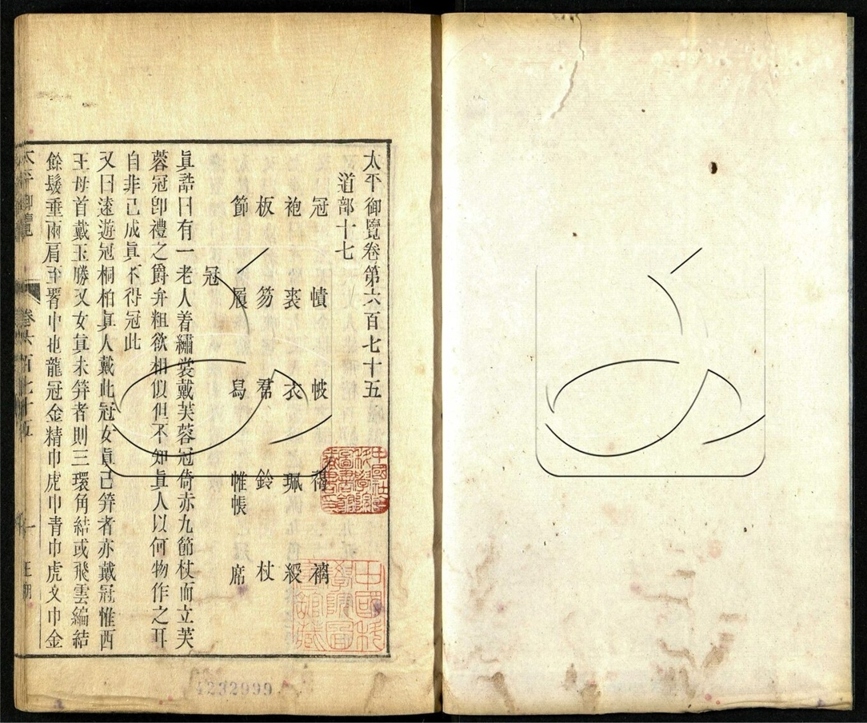 太平御覽卷第六百七十五
道部十七
冠 幘 帔 褐 裯
袍 裘 衣 珮 綬
板 笏 帬 鈴 杖
節 履 舄 帷帳 席
冠
真誥曰有一老人着繡裳戴芙蓉冠倚赤九節杖而立芙
蓉冠即禮之爵弁粗欲相似但不知真人以何物作之耳
自非已成真不得冠此
又曰遠遊冠桐柏真人戴此冠女真已筓者亦戴冠惟西
王母首戴玉勝又女真未筓者則三環角結或飛雲編結
餘髮垂兩肩至𦝫中也龍冠金精巾虎巾青巾虎文巾金
太平御覽 卷六百七十五 一
4232999